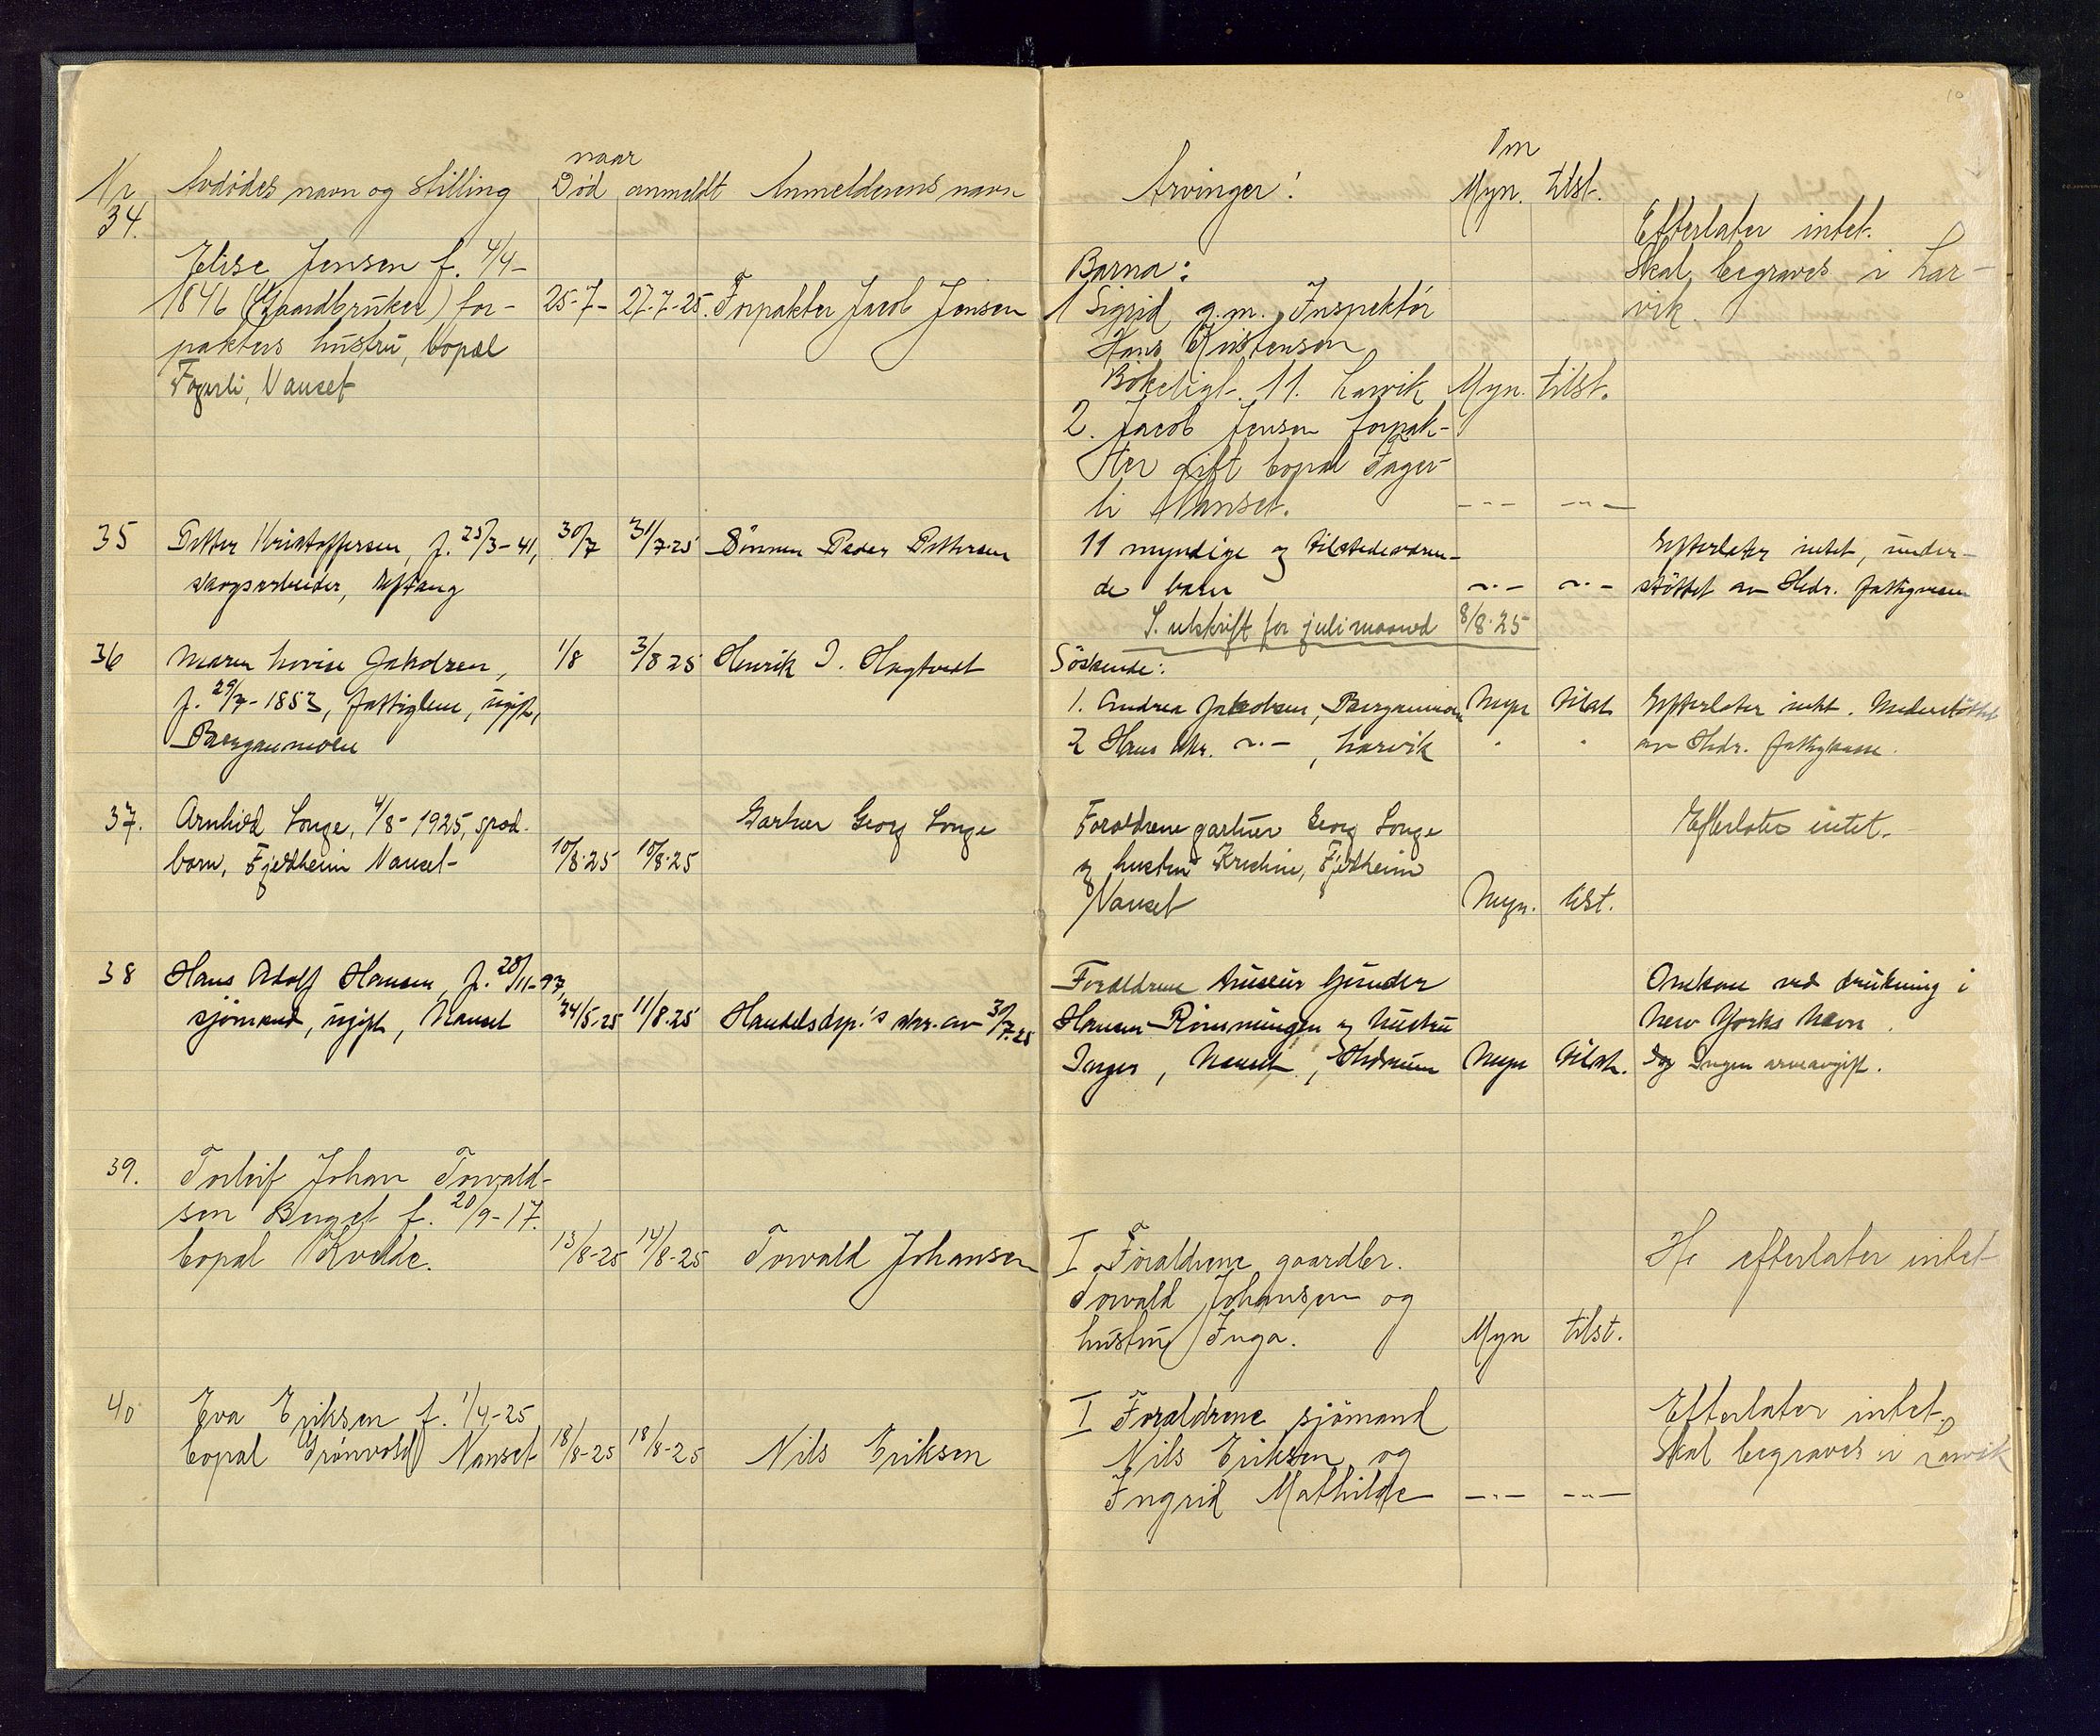 naar
Nr Avdødes navn og stilling Død anmeldt Anmelderens navn
34.
Elise Jensen f. 4/4-
1846 (Gaardbruker) for- 25-7- 27-7-25. Forpakter Jacob Jensen
pakters hustru, bopæl
Fagerli, Nanset
35 Petter Kristoffersen, f. 25/3-41, 30/7 31/7-25 Sönnen Peder Pettersen
skogsarbeider, Eftang
36 Maren Lovise Jakobsen, 1/8 3/8 25 Henrik I. Hagtvedt
f. 29/7-1853, fattiglem, ugift,
Bergaunmoen
37. Arnhild Longe, 4/8-1925, spæd- Gartner Georg Longe
barn, Fjeldheim Nanset 10/8-25 10/8-25
38 Hans Adolf Hansen, f. 28/11-97,
sjömand, ugift, Nanset 24/5-25 11/8-25 Handelsdep.'s skr. av 30/7-25
39. Torleif Johan Torvald-
sen f. 20/9-17.
bopæl Kvelde. 13/8-25 14/8-25 Torvald Johansen
40 Eva Eriksen f. 1/4-25
bopæl Grönvold Nanset 18/8-25 18/8-25 Nils Eriksen
10
Om
Arvinger! Myn. tilst.
Efterlater intet.
Barna: Skal begraves i Lar-
1 Sigrid g.m. Inspektör vik.
Hans Kristensen
Bökeligt. 11. Larvik Myn. tilst.
2. Jacob Jensen forpak-
ter gift bopæl Fager-
li Nanset. -"- -"-
11 myndige og tilstedeværen- Efterlater intet, under-
de barn -"- -"- støttet av Hedr. fattigvesen
S. utskrift for juli maaned 8/8-25
Söskende:
1. Andrea Jakobsen, Bergaunmoen Myn tilst. Efterlater intet. Understøttet
2 Hans Chr. -"-, Larvik " " av Hedr. fattigkasse.
Foreldrene gartner Georg Longe Efterlater intet.
og hustru Kristine, Fjeldheim
Nanset Myn. tilst.
Foreldrene Gunder Omkom ved drukning i
Hansen Rimmingen og hustru New Yorks havn.
Inger, Nanset, Hedrum Myn tilst. Ingen arveavgift.
I Foreldrene gaardbr. efterlater intet
Torvald Johansen og
hustru Inga. Myn tilst.
I Foreldrene sjömand Efterlater intet.
Nils Eriksen og Skal begraves i Larvik
Ingrid Mathilde -"- -"-